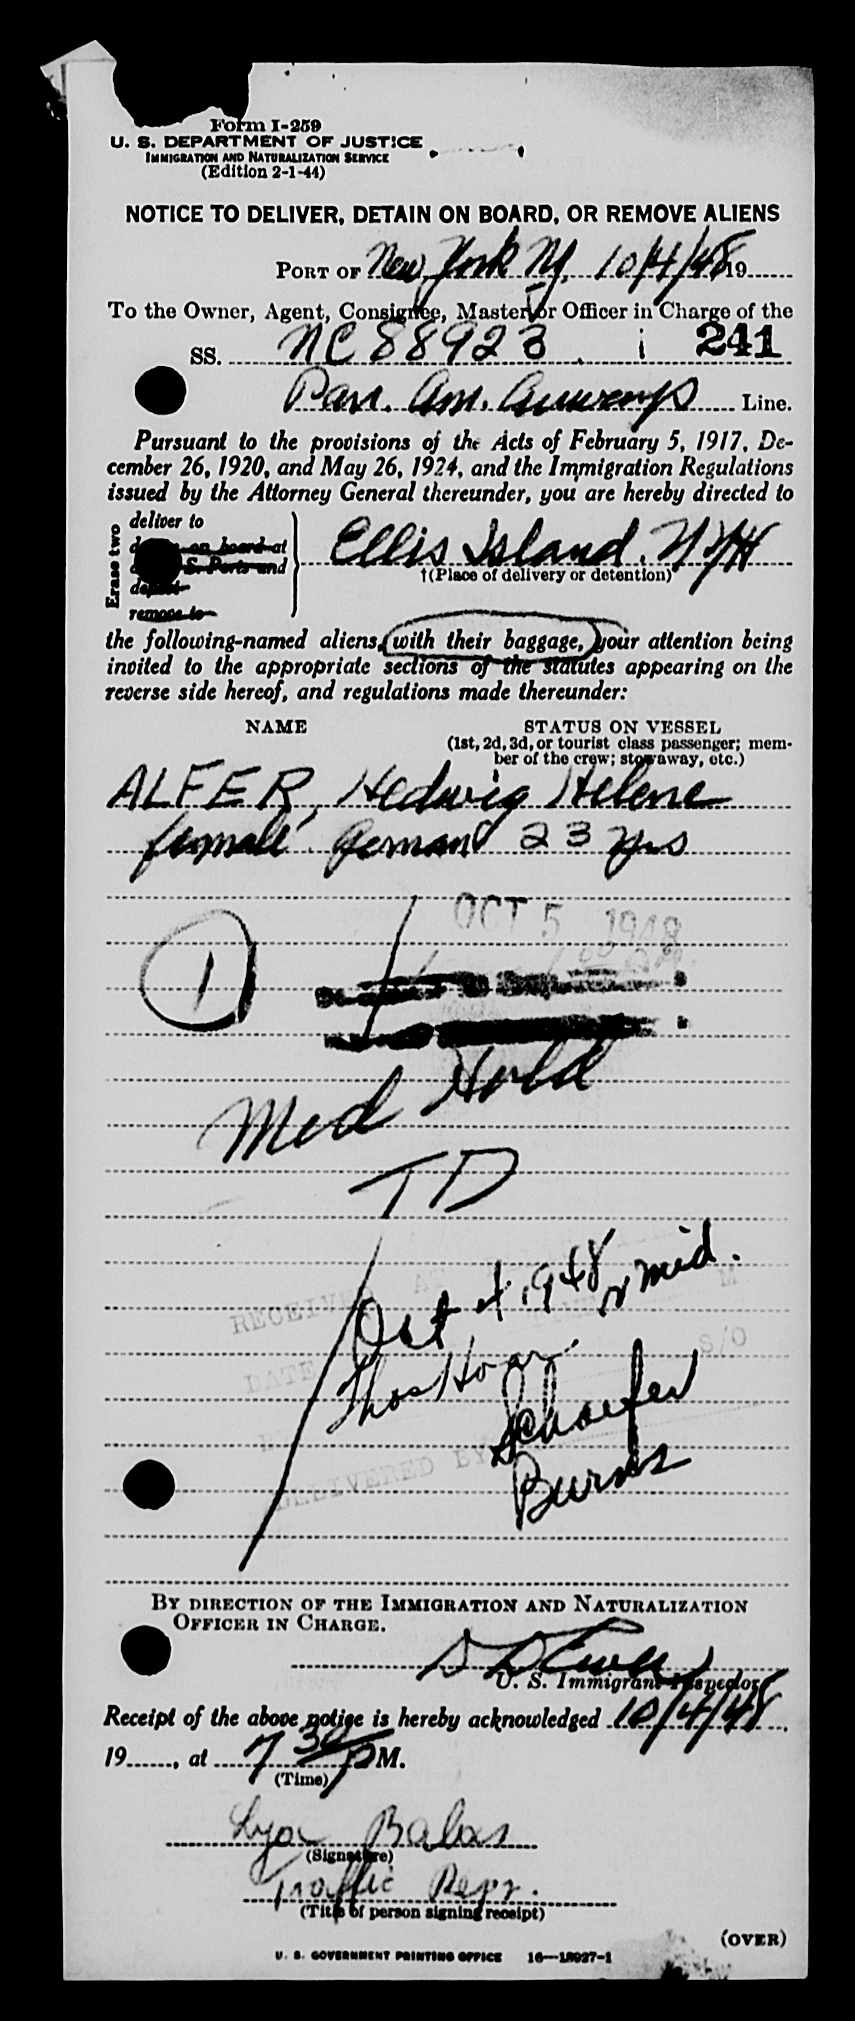 Form I-259
U. S. DEPARTMENT OF JUSTICE
IMMIGRATION AND NATURALIZATION SERVICE
(Edition 2-1-44)
NOTICE TO DELIVER, DETAIN ON BOARD, OR REMOVE ALIENS
PORT OF New York Ny. 10/4/48 19
To the Owner, Agent, Consignee, Master or Officer in Charge of the
SS. NC 88923 241
Pan. Am. Airways Line.
Pursuant to the provisions of the Acts of February 5, 1917, De-
cember 26, 1920, and May 26, 1924, and the Immigration Regulations
issued by the Attorney General thereunder, you are hereby directed to
Erase two
deliver to
on board at
S. Ports and
remove to
Ellis Island, NYH
†(Place of delivery or detention)
the following-named aliens, with their baggage, your attention being
invited to the appropriate sections of the statutes appearing on the
reverse side hereof, and regulations made thereunder:
NAME STATUS ON VESSEL
(1st, 2d, 3d, or tourist class passenger; mem-
ber of the crew; stowaway, etc.)
ALFER, Hedwig Helene
female German 23 yrs
OCT 5 1948
1
Med Hold
TD
Oct 4, 1948
RECEIVED AT
mid.
M
DATE
Thos Hogan
S/O
Schaefer
DELIVERED BY
Burns
BY DIRECTION OF THE IMMIGRATION AND NATURALIZATION
OFFICER IN CHARGE.
U. S. Immigrant Inspector
Receipt of the above notice is hereby acknowledged 10/4/48
19......, at 7 30 P M.
(Time)
(Signature)
Traffic Repr.
(Title of person signing receipt)
(OVER)
U. S. GOVERNMENT PRINTING OFFICE 16—18927-1